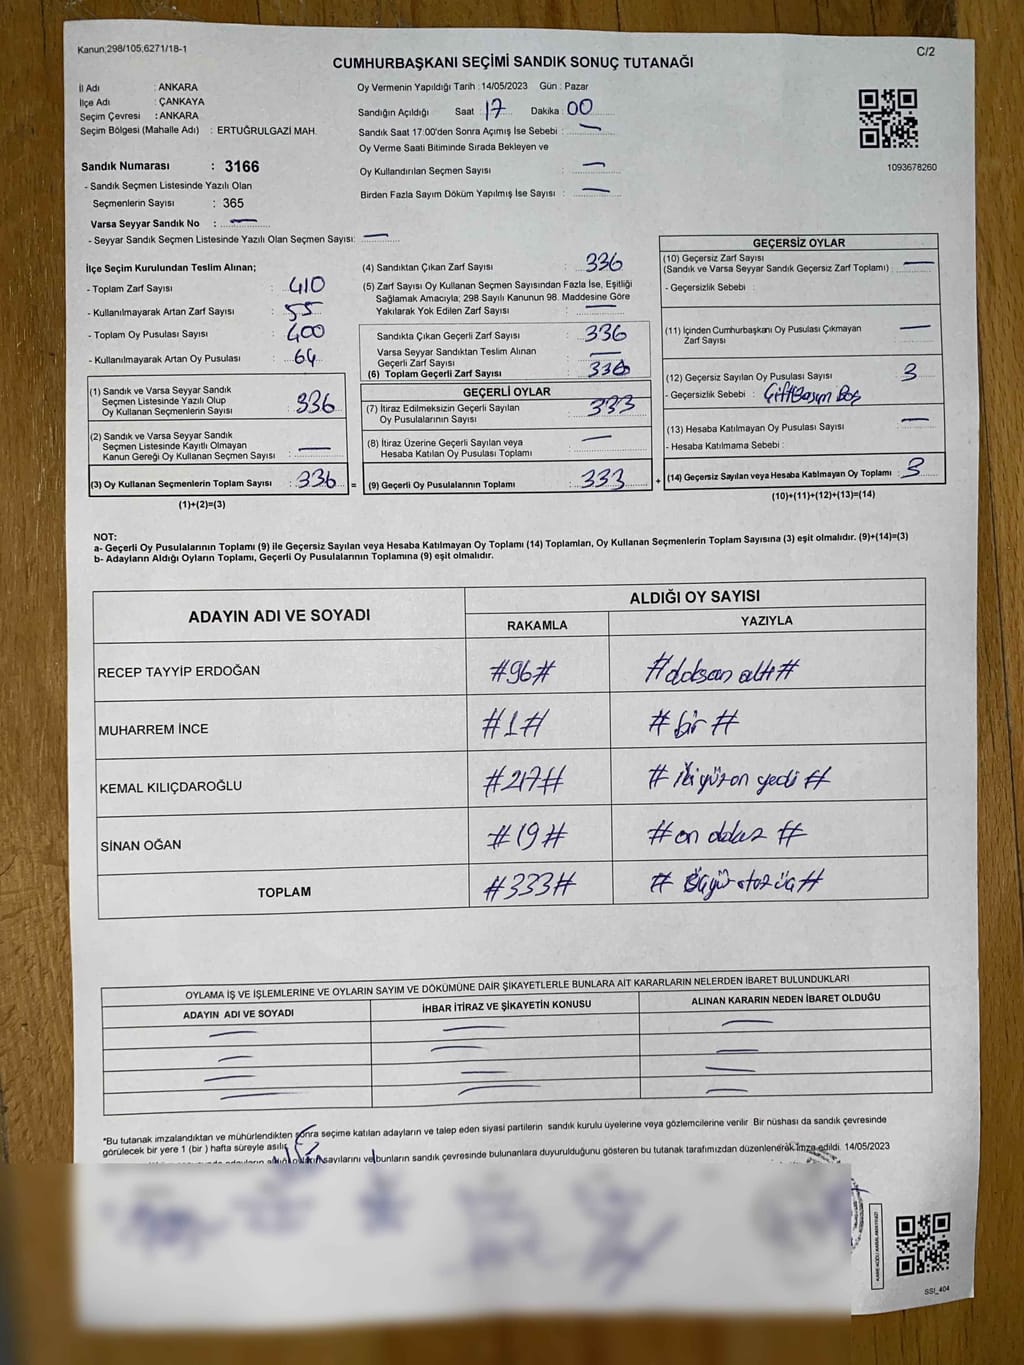 Kanun;298/105,6271/18-1
C/2
CUMHURBAŞKANI SEÇİMİ SANDIK SONUÇ TUTANAĞI
İl Adı : ANKARA
İlçe Adı : ÇANKAYA
Seçim Çevresi : ANKARA
Seçim Bölgesi (Mahalle Adı) : ERTUĞRULGAZİ MAH.
Sandık Numarası : 3166
- Sandık Seçmen Listesinde Yazılı Olan
Seçmenlerin Sayısı : 365
Varsa Seyyar Sandık No : —
- Seyyar Sandık Seçmen Listesinde Yazılı Olan Seçmen Sayısı: —
Oy Vermenin Yapıldığı Tarih : 14/05/2023 Gün : Pazar
Sandığın Açıldığı Saat : 17 Dakika : 00
Sandık Saat 17:00'den Sonra Açımış İse Sebebi : —
Oy Verme Saati Bitiminde Sırada Bekleyen ve
Oy Kullandırılan Seçmen Sayısı : —
Birden Fazla Sayım Döküm Yapılmış İse Sayısı : —
1093678260
İlçe Seçim Kurulundan Teslim Alınan;
- Toplam Zarf Sayısı : 410
- Kullanılmayarak Artan Zarf Sayısı : 55
- Toplam Oy Pusulası Sayısı : 400
- Kullanılmayarak Artan Oy Pusulası : 64
(1) Sandık ve Varsa Seyyar Sandık
Seçmen Listesinde Yazılı Olup
Oy Kullanan Seçmenlerin Sayısı : 336
(2) Sandık ve Varsa Seyyar Sandık
Seçmen Listesinde Kayıtlı Olmayan
Kanun Gereği Oy Kullanan Seçmen Sayısı : —
(3) Oy Kullanan Seçmenlerin Toplam Sayısı : 336 =
(1)+(2)=(3)
(4) Sandıktan Çıkan Zarf Sayısı : 336
(5) Zarf Sayısı Oy Kullanan Seçmen Sayısından Fazla İse, Eşitliği
Sağlamak Amacıyla; 298 Sayılı Kanunun 98. Maddesine Göre
Yakılarak Yok Edilen Zarf Sayısı : —
Sandıkta Çıkan Geçerli Zarf Sayısı : 336
Varsa Seyyar Sandıktan Teslim Alınan
Geçerli Zarf Sayısı : —
(6) Toplam Geçerli Zarf Sayısı : 336
GEÇERLİ OYLAR
(7) İtiraz Edilmeksizin Geçerli Sayılan
Oy Pusulalarının Sayısı : 333
(8) İtiraz Üzerine Geçerli Sayılan veya
Hesaba Katılan Oy Pusulası Toplamı : —
(9) Geçerli Oy Pusulalarının Toplamı : 333 +
GEÇERSİZ OYLAR
(10) Geçersiz Zarf Sayısı
(Sandık ve Varsa Seyyar Sandık Geçersiz Zarf Toplamı) : —
- Geçersizlik Sebebi :
(11) İçinden Cumhurbaşkanı Oy Pusulası Çıkmayan
Zarf Sayısı : —
(12) Geçersiz Sayılan Oy Pusulası Sayısı : 3
- Geçersizlik Sebebi : Çift Basım Boş
(13) Hesaba Katılmayan Oy Pusulası Sayısı : —
- Hesaba Katılmama Sebebi :
(14) Geçersiz Sayılan veya Hesaba Katılmayan Oy Toplamı : 3
(10)+(11)+(12)+(13)=(14)
NOT:
a- Geçerli Oy Pusulalarının Toplamı (9) ile Geçersiz Sayılan veya Hesaba Katılmayan Oy Toplamı (14) Toplamları, Oy Kullanan Seçmenlerin Toplam Sayısına (3) eşit olmalıdır. (9)+(14)=(3)
b- Adayların Aldığı Oyların Toplamı, Geçerli Oy Pusulalarının Toplamına (9) eşit olmalıdır.
ADAYIN ADI VE SOYADI
ALDIĞI OY SAYISI
RAKAMLA YAZIYLA
RECEP TAYYİP ERDOĞAN #96# #doksan altı#
MUHARREM İNCE #1# #bir#
KEMAL KILIÇDAROĞLU #217# #ikiyüzon yedi#
SİNAN OĞAN #19# #on dokuz#
TOPLAM #333# #üçyüzotuz üç#
OYLAMA İŞ VE İŞLEMLERİNE VE OYLARIN SAYIM VE DÖKÜMÜNE DAİR ŞİKAYETLERLE BUNLARA AİT KARARLARIN NELERDEN İBARET BULUNDUKLARI
ADAYIN ADI VE SOYADI İHBAR İTİRAZ VE ŞİKAYETİN KONUSU ALINAN KARARIN NEDEN İBARET OLDUĞU
— — —
— — —
— — —
— — —
*Bu tutanak imzalandıktan ve mühürlendikten sonra seçime katılan adayların ve talep eden siyasi partilerin sandık kurulu üyelerine veya gözlemcilerine verilir. Bir nüshası da sandık çevresinde
görülecek bir yere 1 (bir ) hafta süreyle asılır.
sayılarını bunların sandık çevresinde bulunanlara duyurulduğunu gösteren bu tutanak tarafımızdan düzenlenerek imza edildi. 14/05/2023
SSI_404